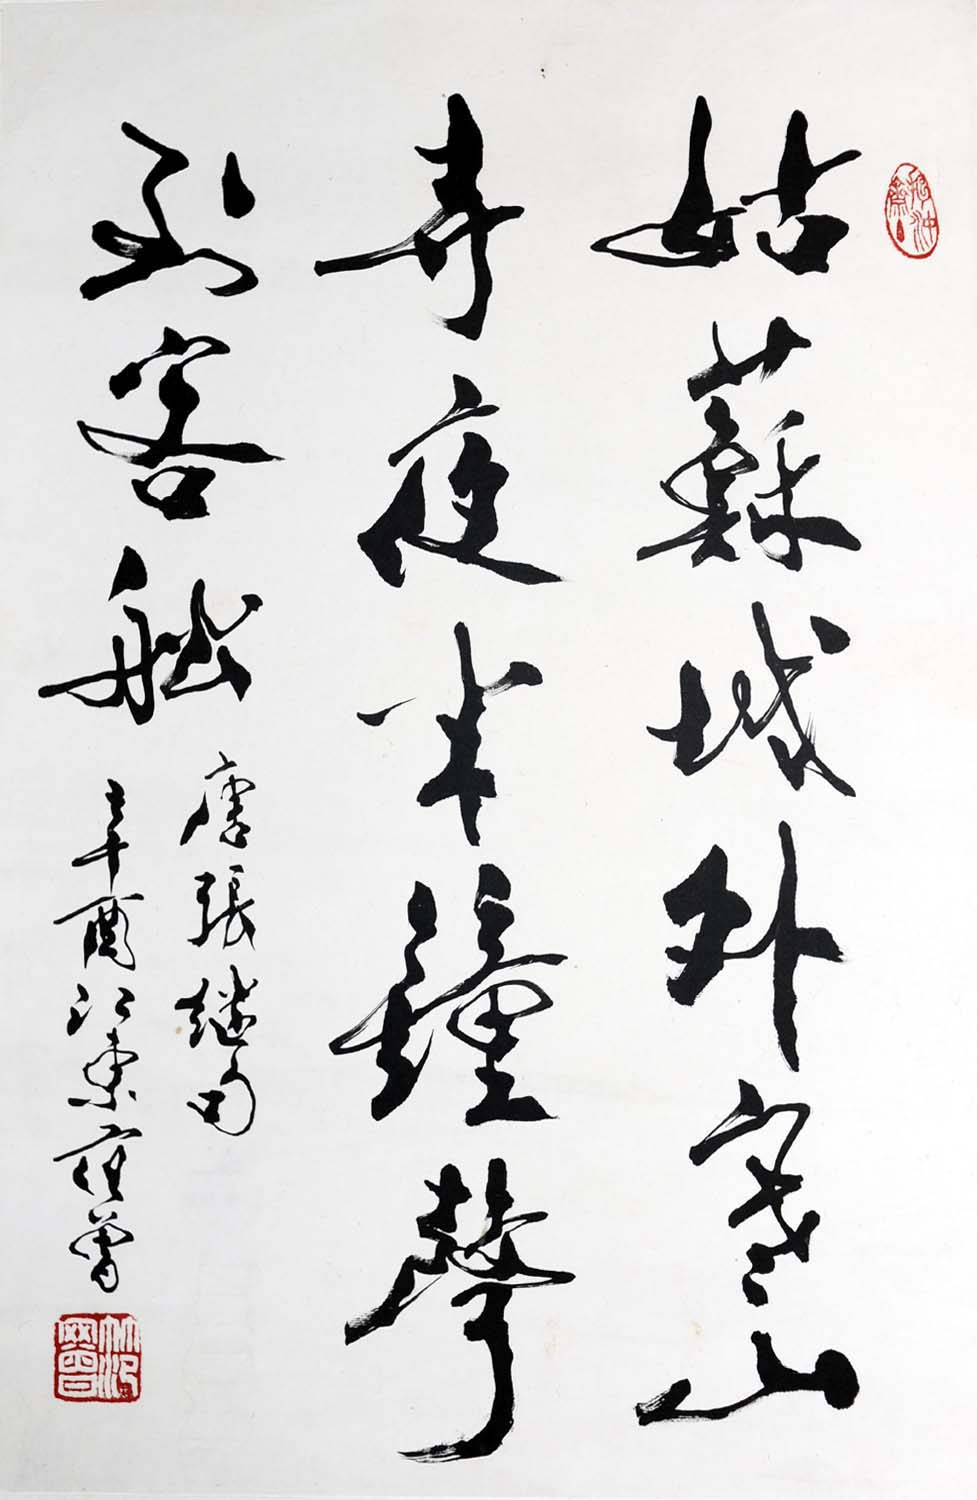 抱沖齋
姑蘇城外寒山
寺夜半鐘聲
到客船
唐張繼句
辛酉江東范曾